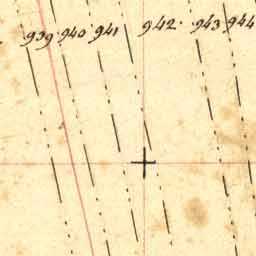 939. 940 941 942. 943 944